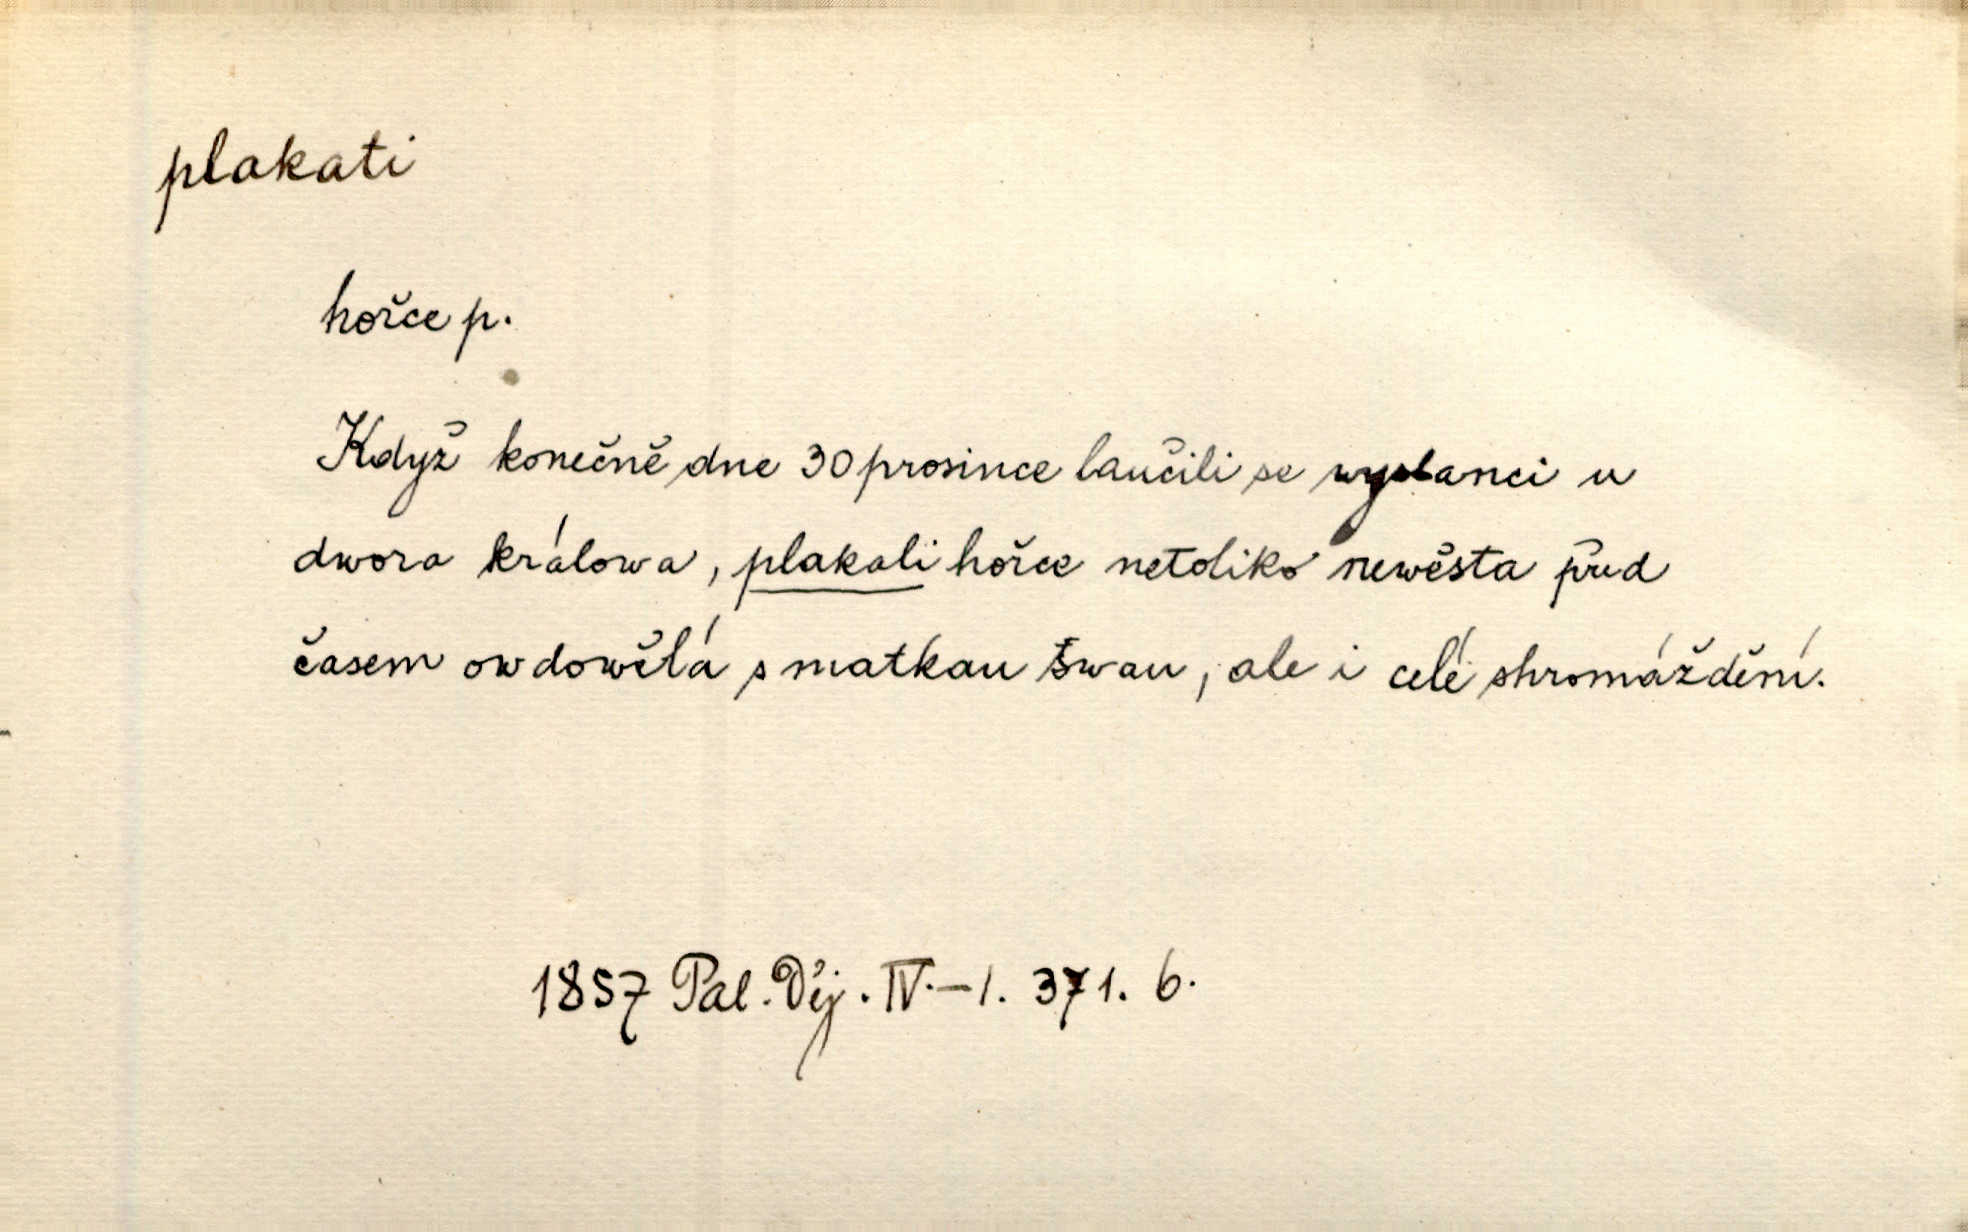 plakati
hořce p.
Když konečně dne 30 prosince laučili se wyslanci u
dwora králowa, plakali hořce netoliko newěsta před
časem owdowělá s matkau swau, ale i celé shromáždění.
1857 Pal. Děj. IV.–1. 371. b.